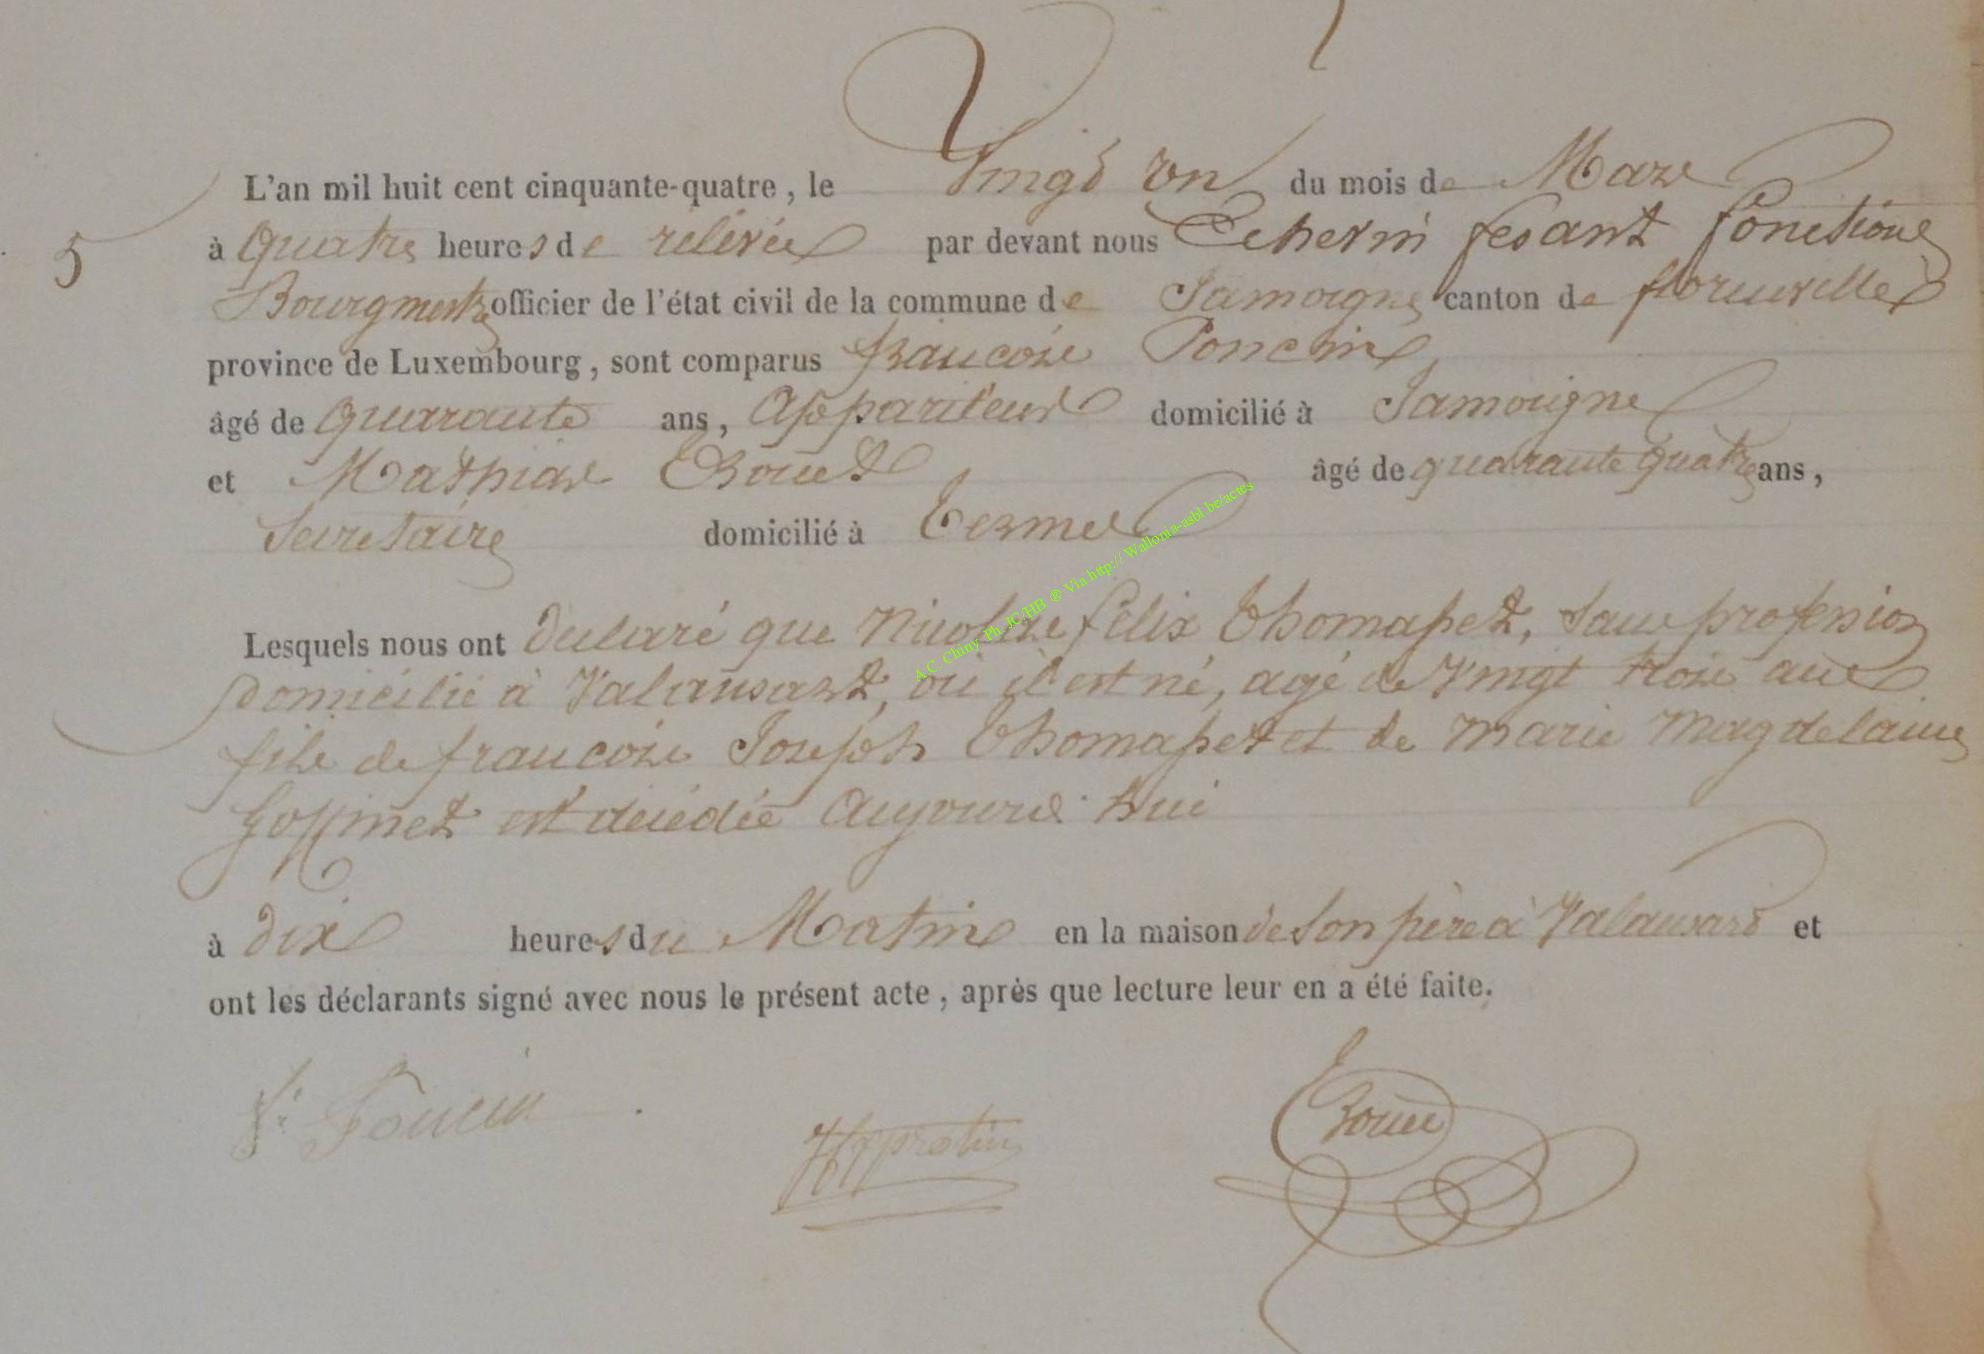 L'an mil huit cent cinquante-quatre, le Vingt un du mois de Mars
5 à quatre heures de rélévée par devant nous Echevin fesant fonctions
Bourgmestre officier de l'état civil de la commune de Jamoigne canton de florenville
province de Luxembourg, sont comparus francois Poncin
âgé de quarante ans, Appariteur domicilié à Jamoigne
et Mathias âgé de quarante quatre ans,
Secretaire domicilié à Termes
Lesquels nous ont declaré que Nicolas felix Thomasset, sans profession
domicilié à Valansart, où il est né, agé de Vingt trois ans
fils de francois Joseph Thomasset et de marie magdelaine
Goffinet est décédée aujourd'hui
à dix heures du Matin en la maison de son père à Valansard et
ont les déclarants signé avec nous le présent acte, après que lecture leur en a été faite.
f. Poncin
A.C Chiny Ph. JC-HB ® Via http://Wallonia-asbl.be/actes